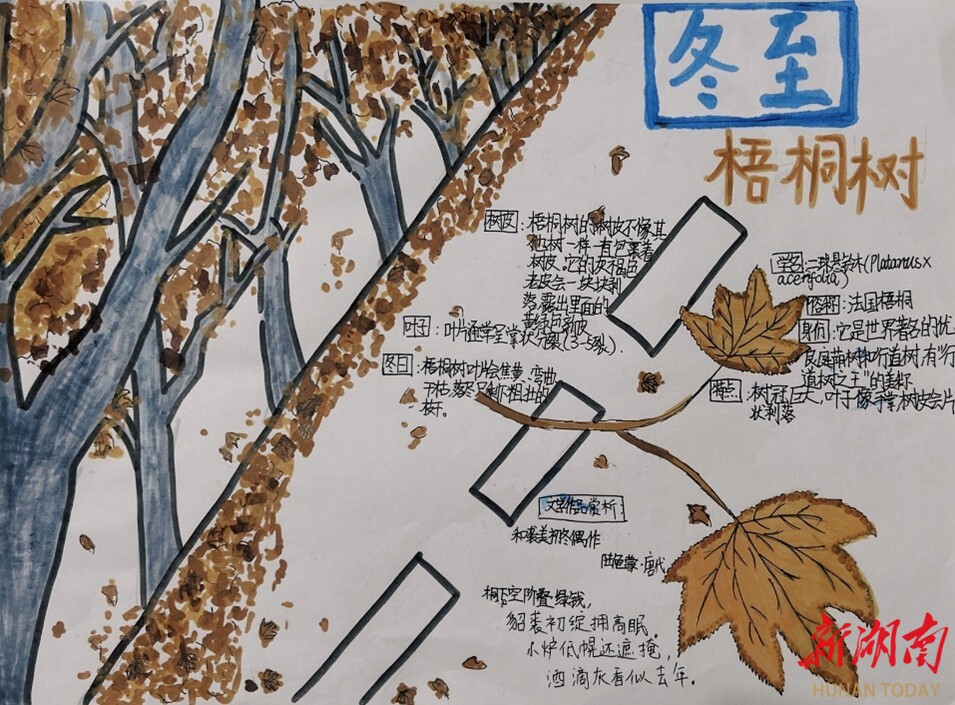 冬至
梧桐树
树皮：梧桐树的树皮不像其
他树一样有包裹着
树皮.它的灰褐色
老皮会一块块剥
落.露出里面的
黄绿色新皮
叶子：叶片通常呈掌状分裂(3-5裂).
冬日：梧桐树叶片会焦黄、弯曲
干枯.落尽只剩下粗壮的
枝干。
学名：二球悬铃木(Platanus×
acerifolia)
俗称：法国梧桐
身份：它是世界著名的优
良庭荫树和行道树,有"行
道树之王"的美称
特点：树冠巨大,叶子像手掌树皮会片
状剥落
文学作品赏析：
和袭美初冬偶作
陆龟蒙·唐代
桐下空阶叠绿钱，
貂裘初绽拥高眠.
小炉低幌还遮掩，
酒滴灰香似去年.
新湖南
HUNAN TODAY